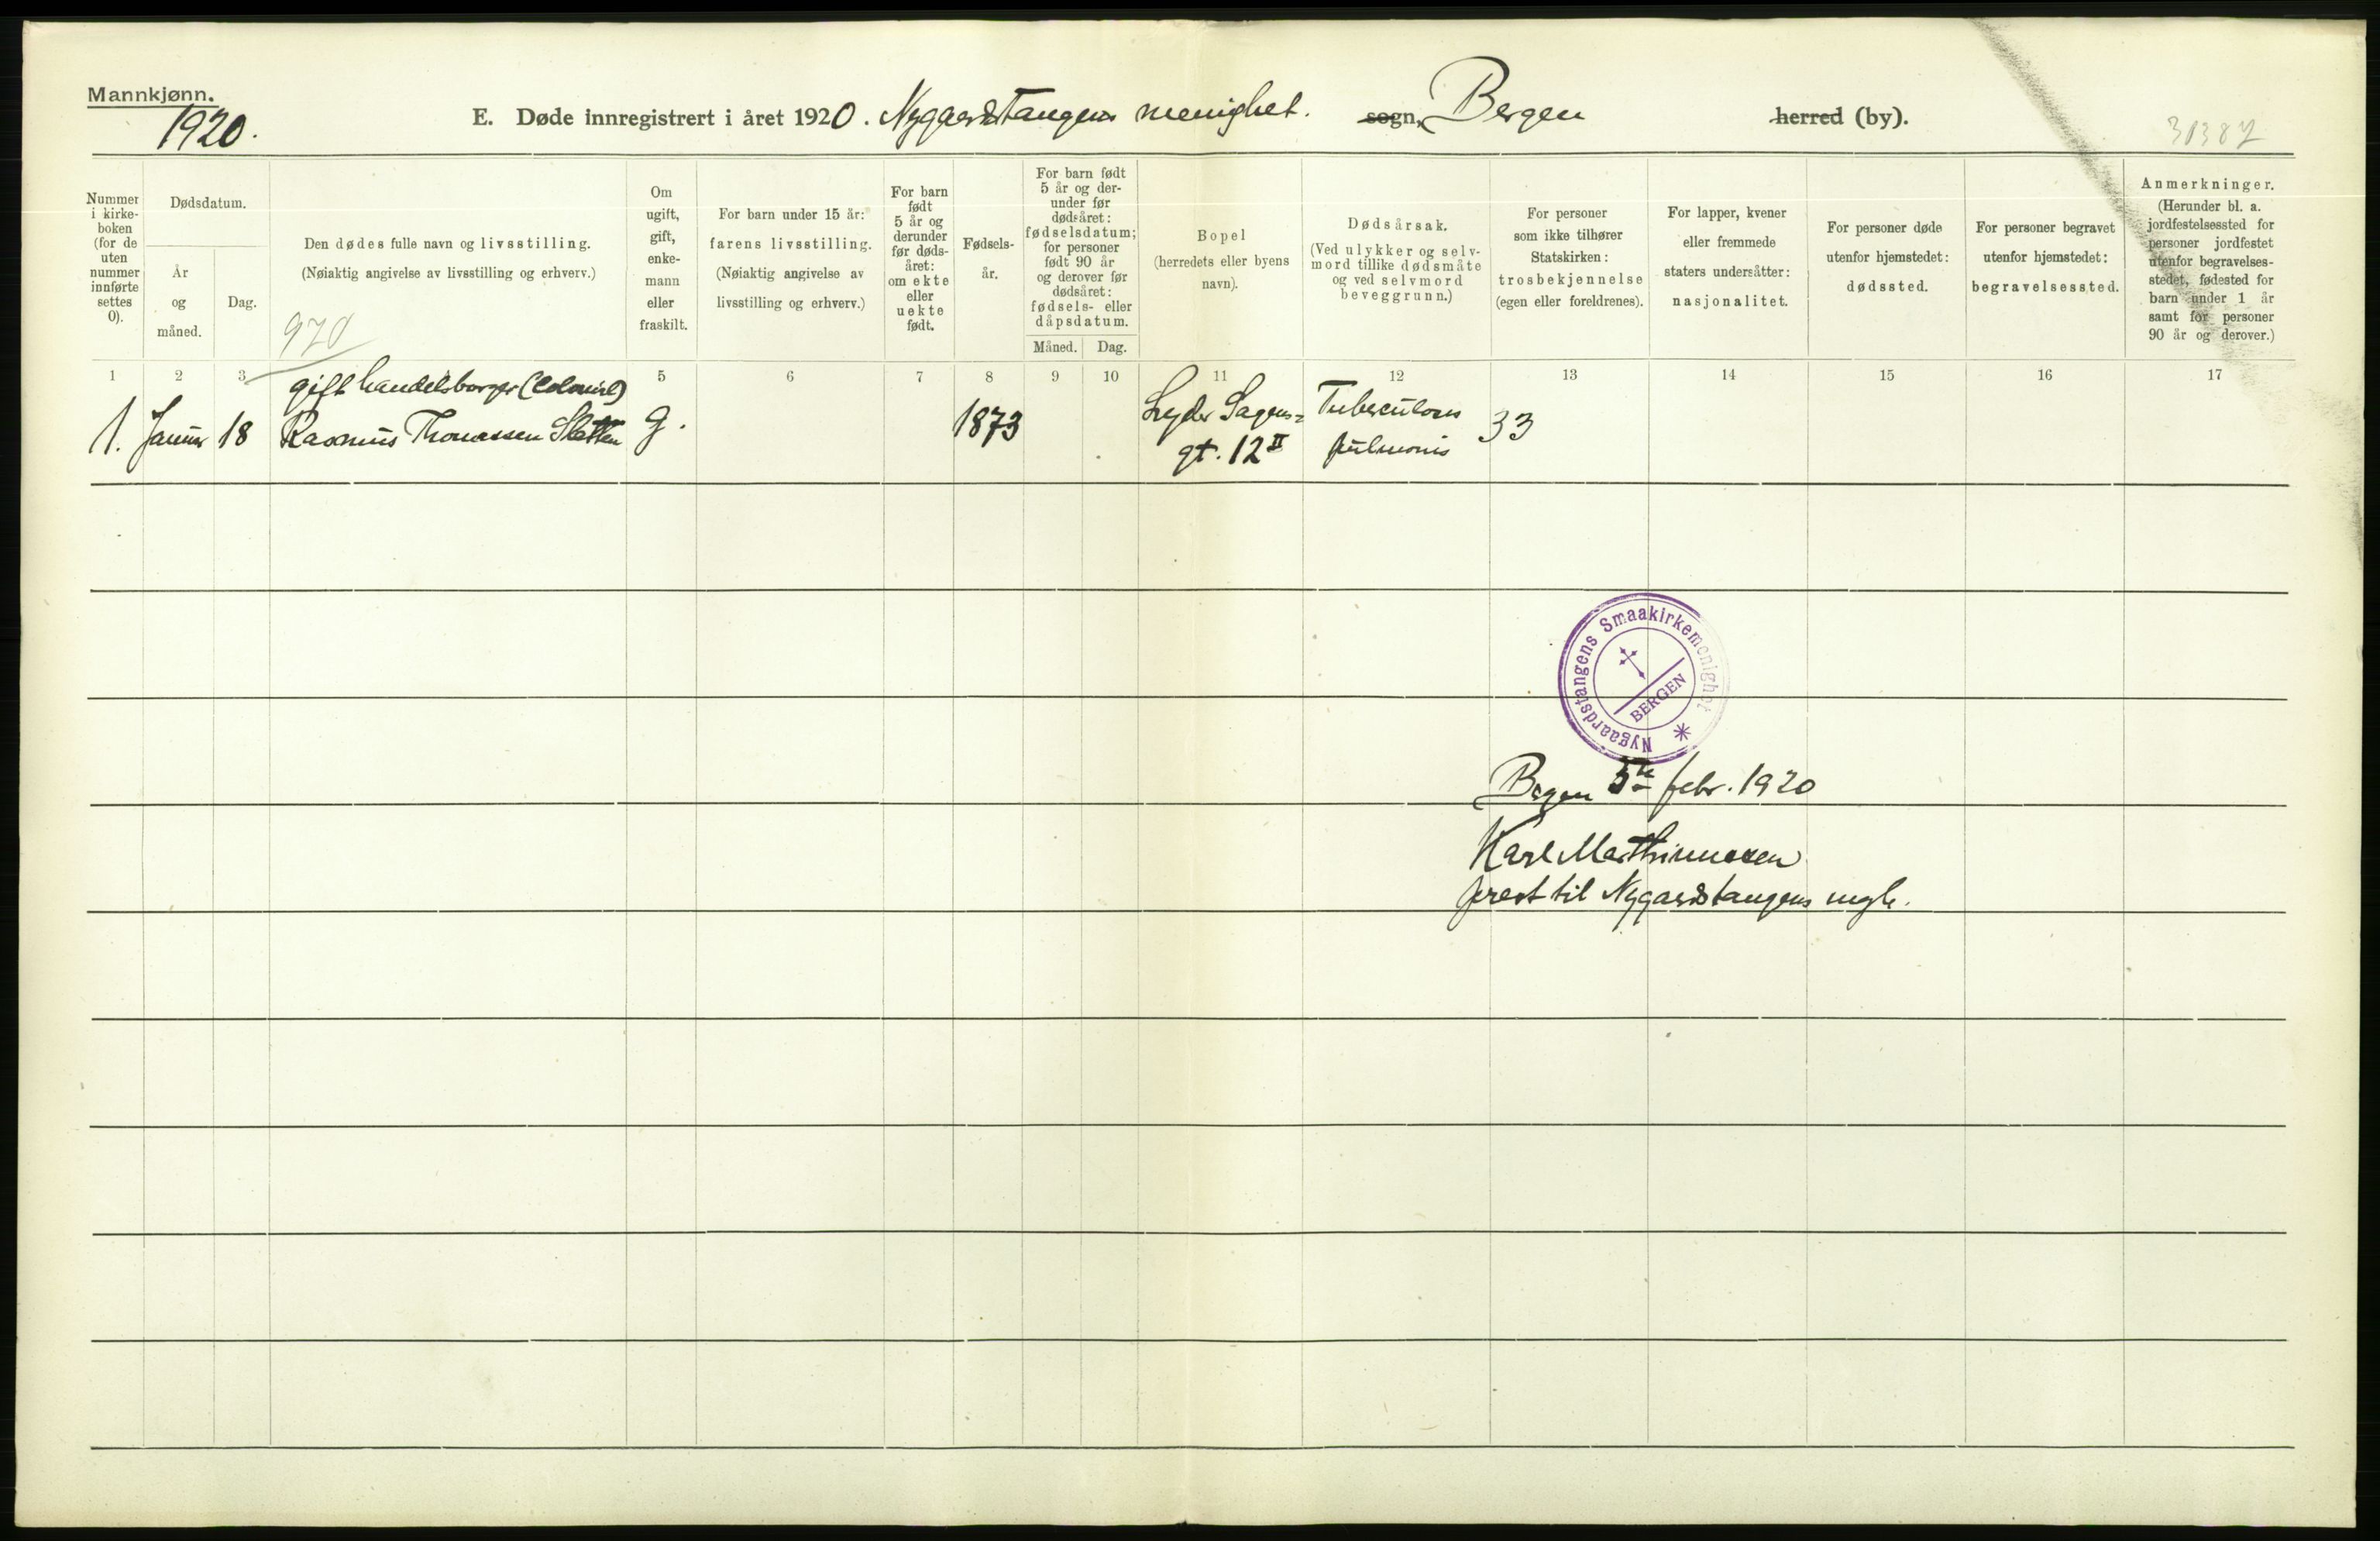 Mannkjønn.
1920.
E. Døde innregistrert i året 1920. Nygaardstangens menighet. sogn, Bergen herred (by).
31387
Nummer i kirke-
boken
(for de
uten
nummer
innførte
settes
0).
Dødsdatum.
År
og
måned.
Dag.
Den dødes fulle navn og livsstilling.
(Nøiaktig angivelse av livsstilling og erhverv.)
970
Om
ugift,
gift,
enke-
mann
eller
fraskilt.
For barn under 15 år:
farens livsstilling.
(Nøiaktig angivelse av
livsstilling og erhverv.)
For barn
født
5 år og
derunder
før døds-
året:
om ekte
eller
uekte
født.
Fødsels-
år.
For barn født
5 år og der-
under før
dødsåret:
fødselsdatum;
for personer
født 90 år
og derover før
dødsåret:
fødsels- eller
dåpsdatum.
Måned. Dag.
Bopel
(herredets eller byens
navn).
Dødsårsak.
(Ved ulykker og selv-
mord tillike dødsmåte
og ved selvmord
beveggrunn.)
For personer
som ikke tilhører
Statskirken:
trosbekjennelse
(egen eller foreldrenes).
For lapper, kvener
eller fremmede
staters undersåtter:
nasjonalitet.
For personer døde
utenfor hjemstedet:
dødssted.
For personer begravet
utenfor hjemstedet:
begravelsessted.
Anmerkninger.
(Herunder bl. a.
jordfestelsessted for
personer jordfestet
utenfor begravelses-
stedet, fødested for
barn under 1 år
samt for personer
90 år og derover.)
1 2 3 5 6 7 8 9 10 11 12 13 14 15 16 17
gift handelsborger (Colonial)
1. Januar 18 Rasmus Thomassen Sletten g. 1873
Lyder Sagens=
gt. 12 II
Tuberculosis
pulmonis
33
Nygaardstangens Smaakirkemenighet
BERGEN
Bergen 5te febr. 1920
Karl Marthinussen
prest til Nygaardstangens mgh.